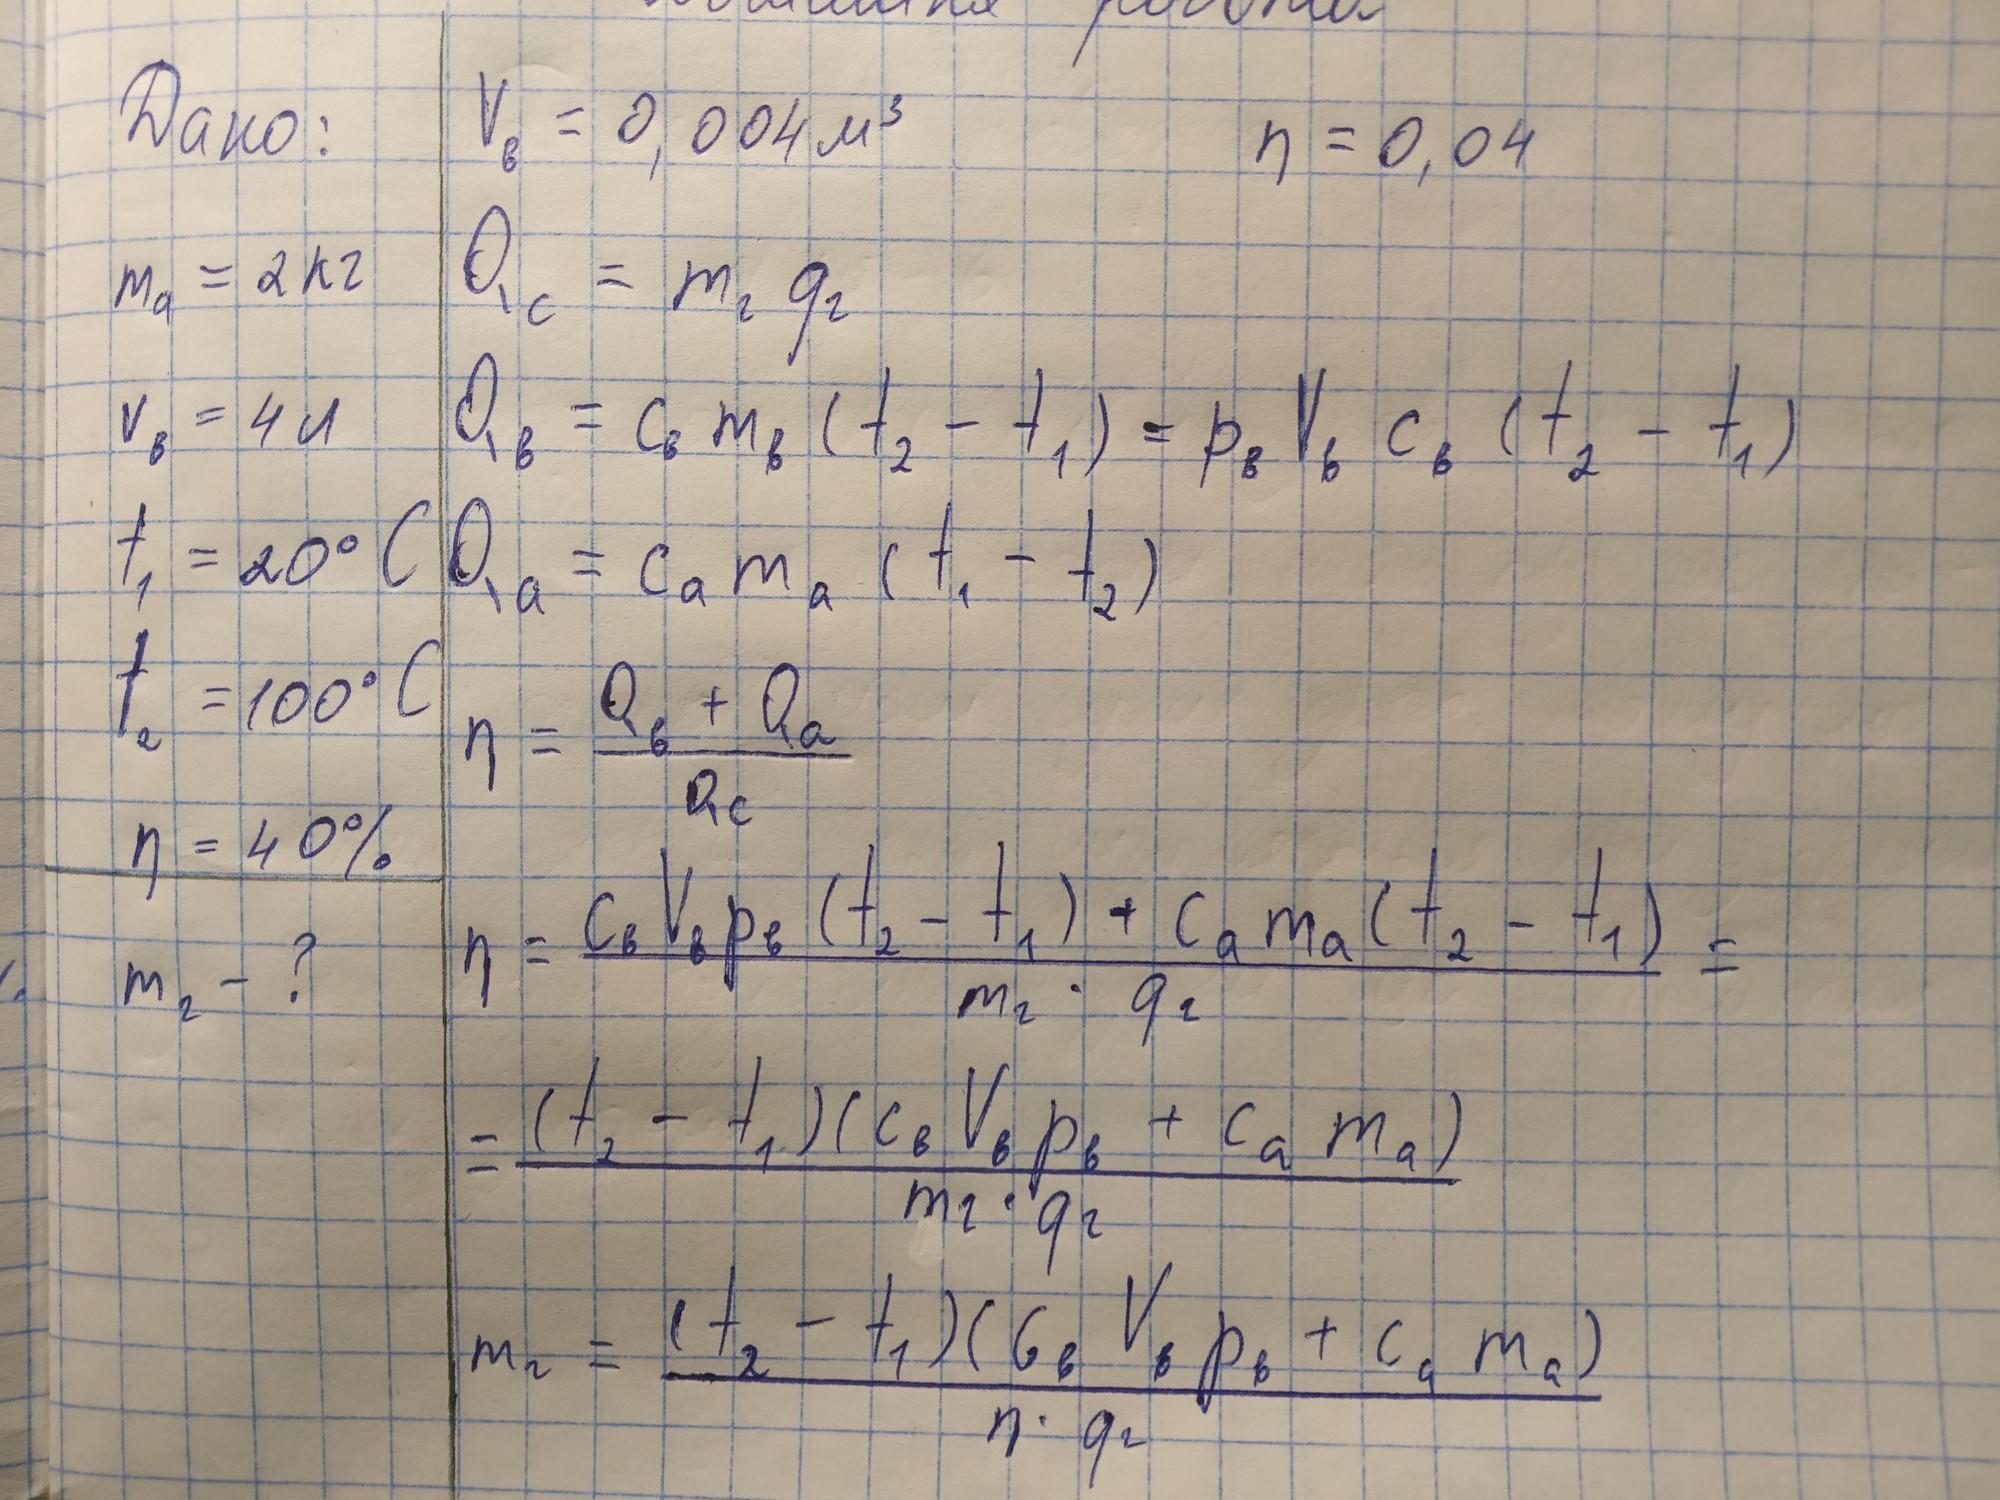 робота
Дано:
mₐ = 2кг
vв = 4л
t₁ = 20°C
t₂ = 100°C
η = 40%
mг - ?
Vв = 0,004м³ η = 0,04
Qc = mг qг
Qв = cв mв (t₂ - t₁) = ρв Vв cв (t₂ - t₁)
Qа = cа mа (t₁ - t₂)
η = (Qв + Qа) / Qc
η = (cв Vв ρв (t₂ - t₁) + cа mа (t₂ - t₁)) / (mг · qг) =
= (t₂ - t₁)(cв Vв ρв + cа mа) / (mг · qг)
mг = (t₂ - t₁)(cв Vв ρв + cа mа) / (η · qг)